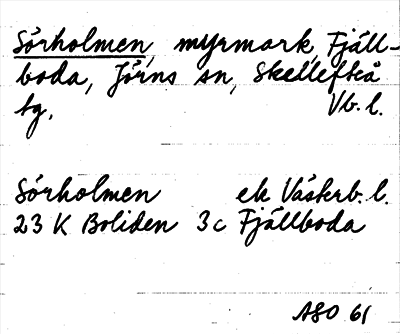 Sörholmen, myrmark, Fjäll-
boda, Jörns sn, Skellefteå
tg, Vb. l.
Sörholmen ek Västerb. l.
23 K Boliden 3c Fjällboda
ASO 61